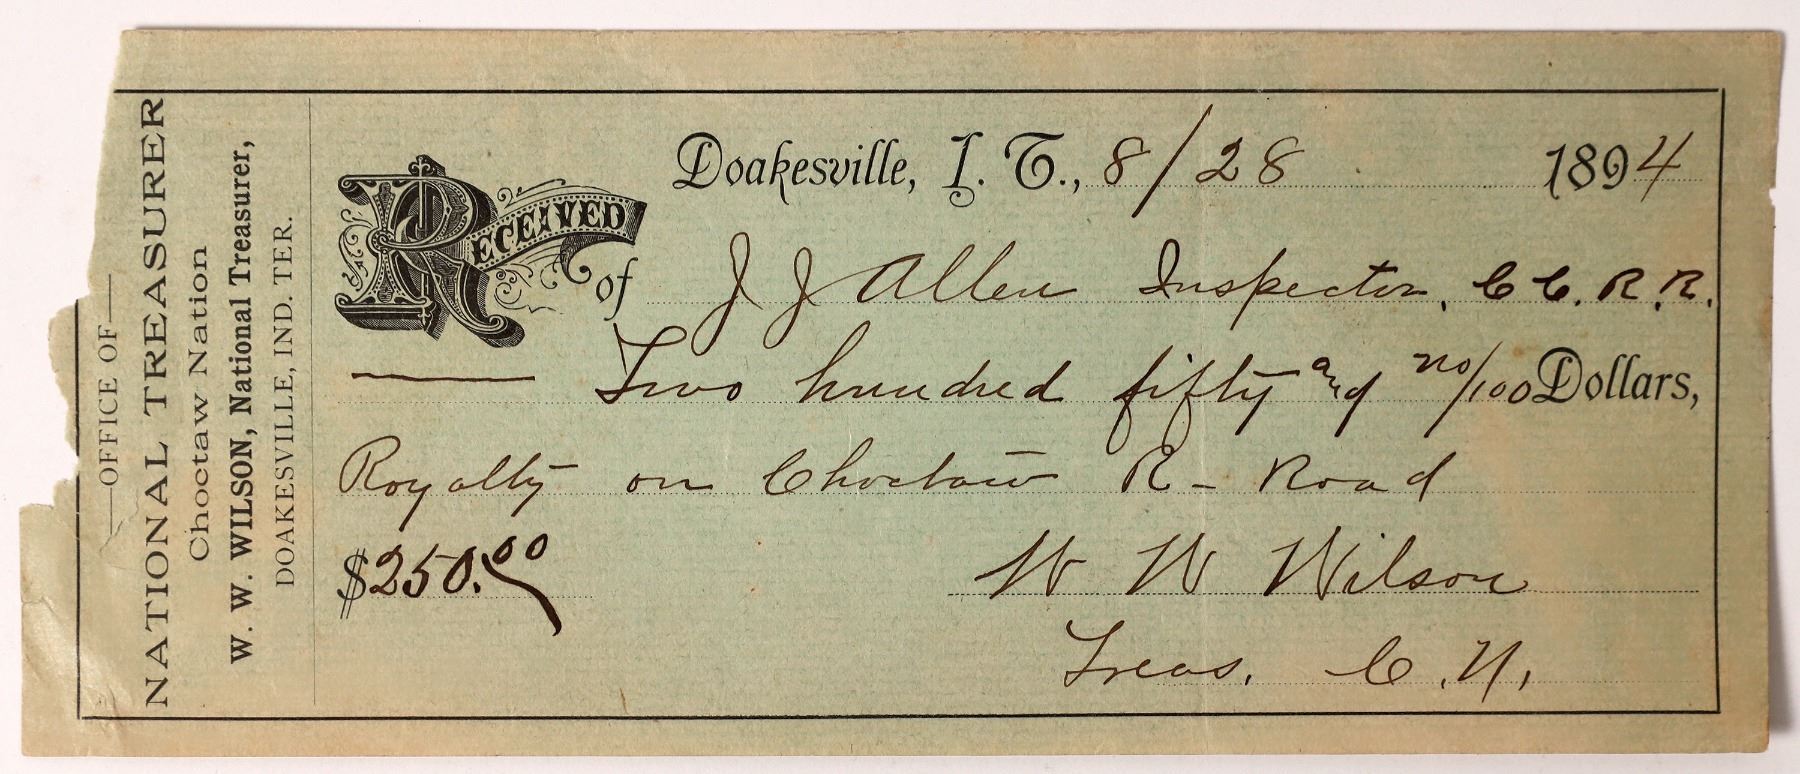 OFFICE OF
NATIONAL TREASURER
Choctaw Nation
W. W. WILSON, National Treasurer,
DOAKESVILLE, IND. TER.
Doakesville, I. T., 8/28 1894
RECEIVED of J J Allen Inspector, C C. R. R.
Two hundred fifty and no/100 Dollars,
Royalty on Choctaw R- Road
$250.00
W W Wilson
Treas. C. N.